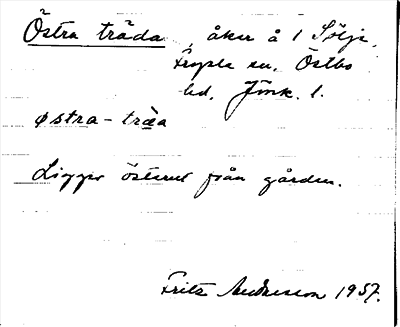 Östra träda, åker å 1 Sölje,
Fryele sn, Östbo
hd, Jönk. l.
østra-träa
Ligger österut från gården.
Fritz Andersson 1937.